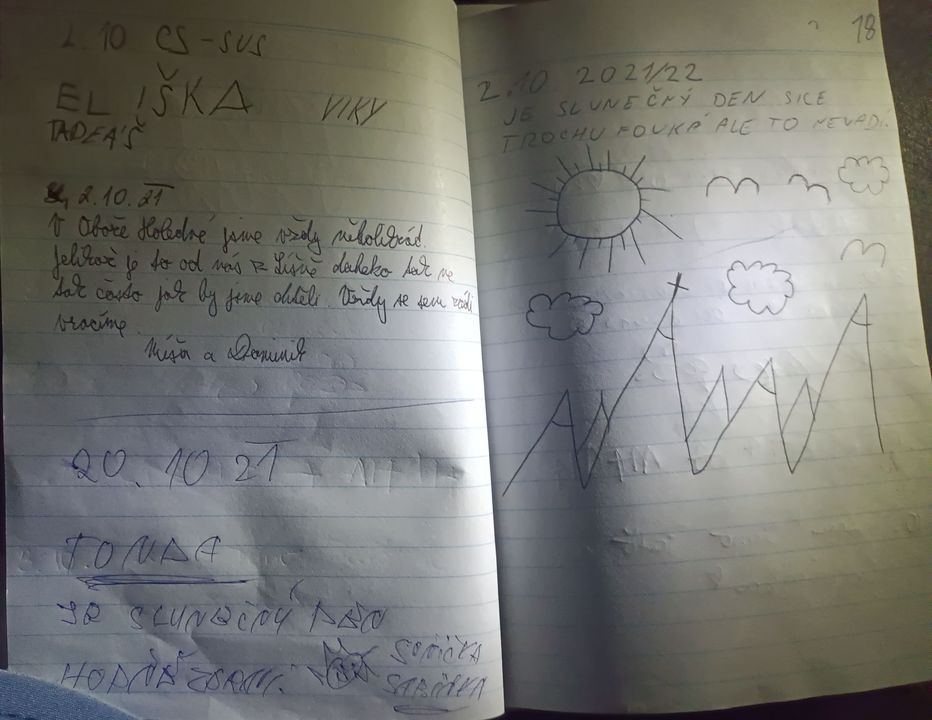 2.10 CS-SVS
ELIŠKA VIKY
TADEÁŠ
2.10.21
V Oboře Holedné jsme vždy několikrát.
Jelikož je to od nás z Líšně daleko tak ne
tak často jak by jsme chtěli. Vždy se sem rádi
vracíme
Míša a Dominik
20.10 21
TONDA
JE SLUNEČNÝ DEN
HODNĚ ZDRAVÍ
SONIČKA
18
2.10 2021/22
JE SLUNEČNÝ DEN SICE
TROCHU FOUKÁ ALE TO NEVADÍ.